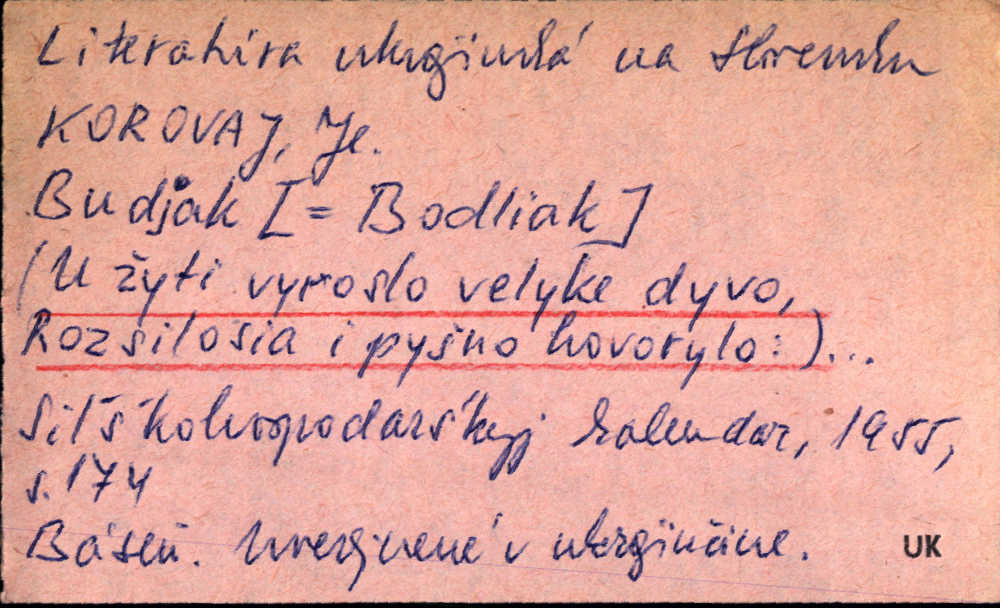 Literatúra ukrajinská na Slovensku
KOROVAJ, Je.
Budjak [= Bodliak]
(U žyti vyroslo velyke dyvo,
Rozsilosia i pyšno hovorylo:)...
Siľs'kohospodars'kyj kalendar, 1955,
s. 174
Báseň. Uverejnené v ukrajinčine. UK